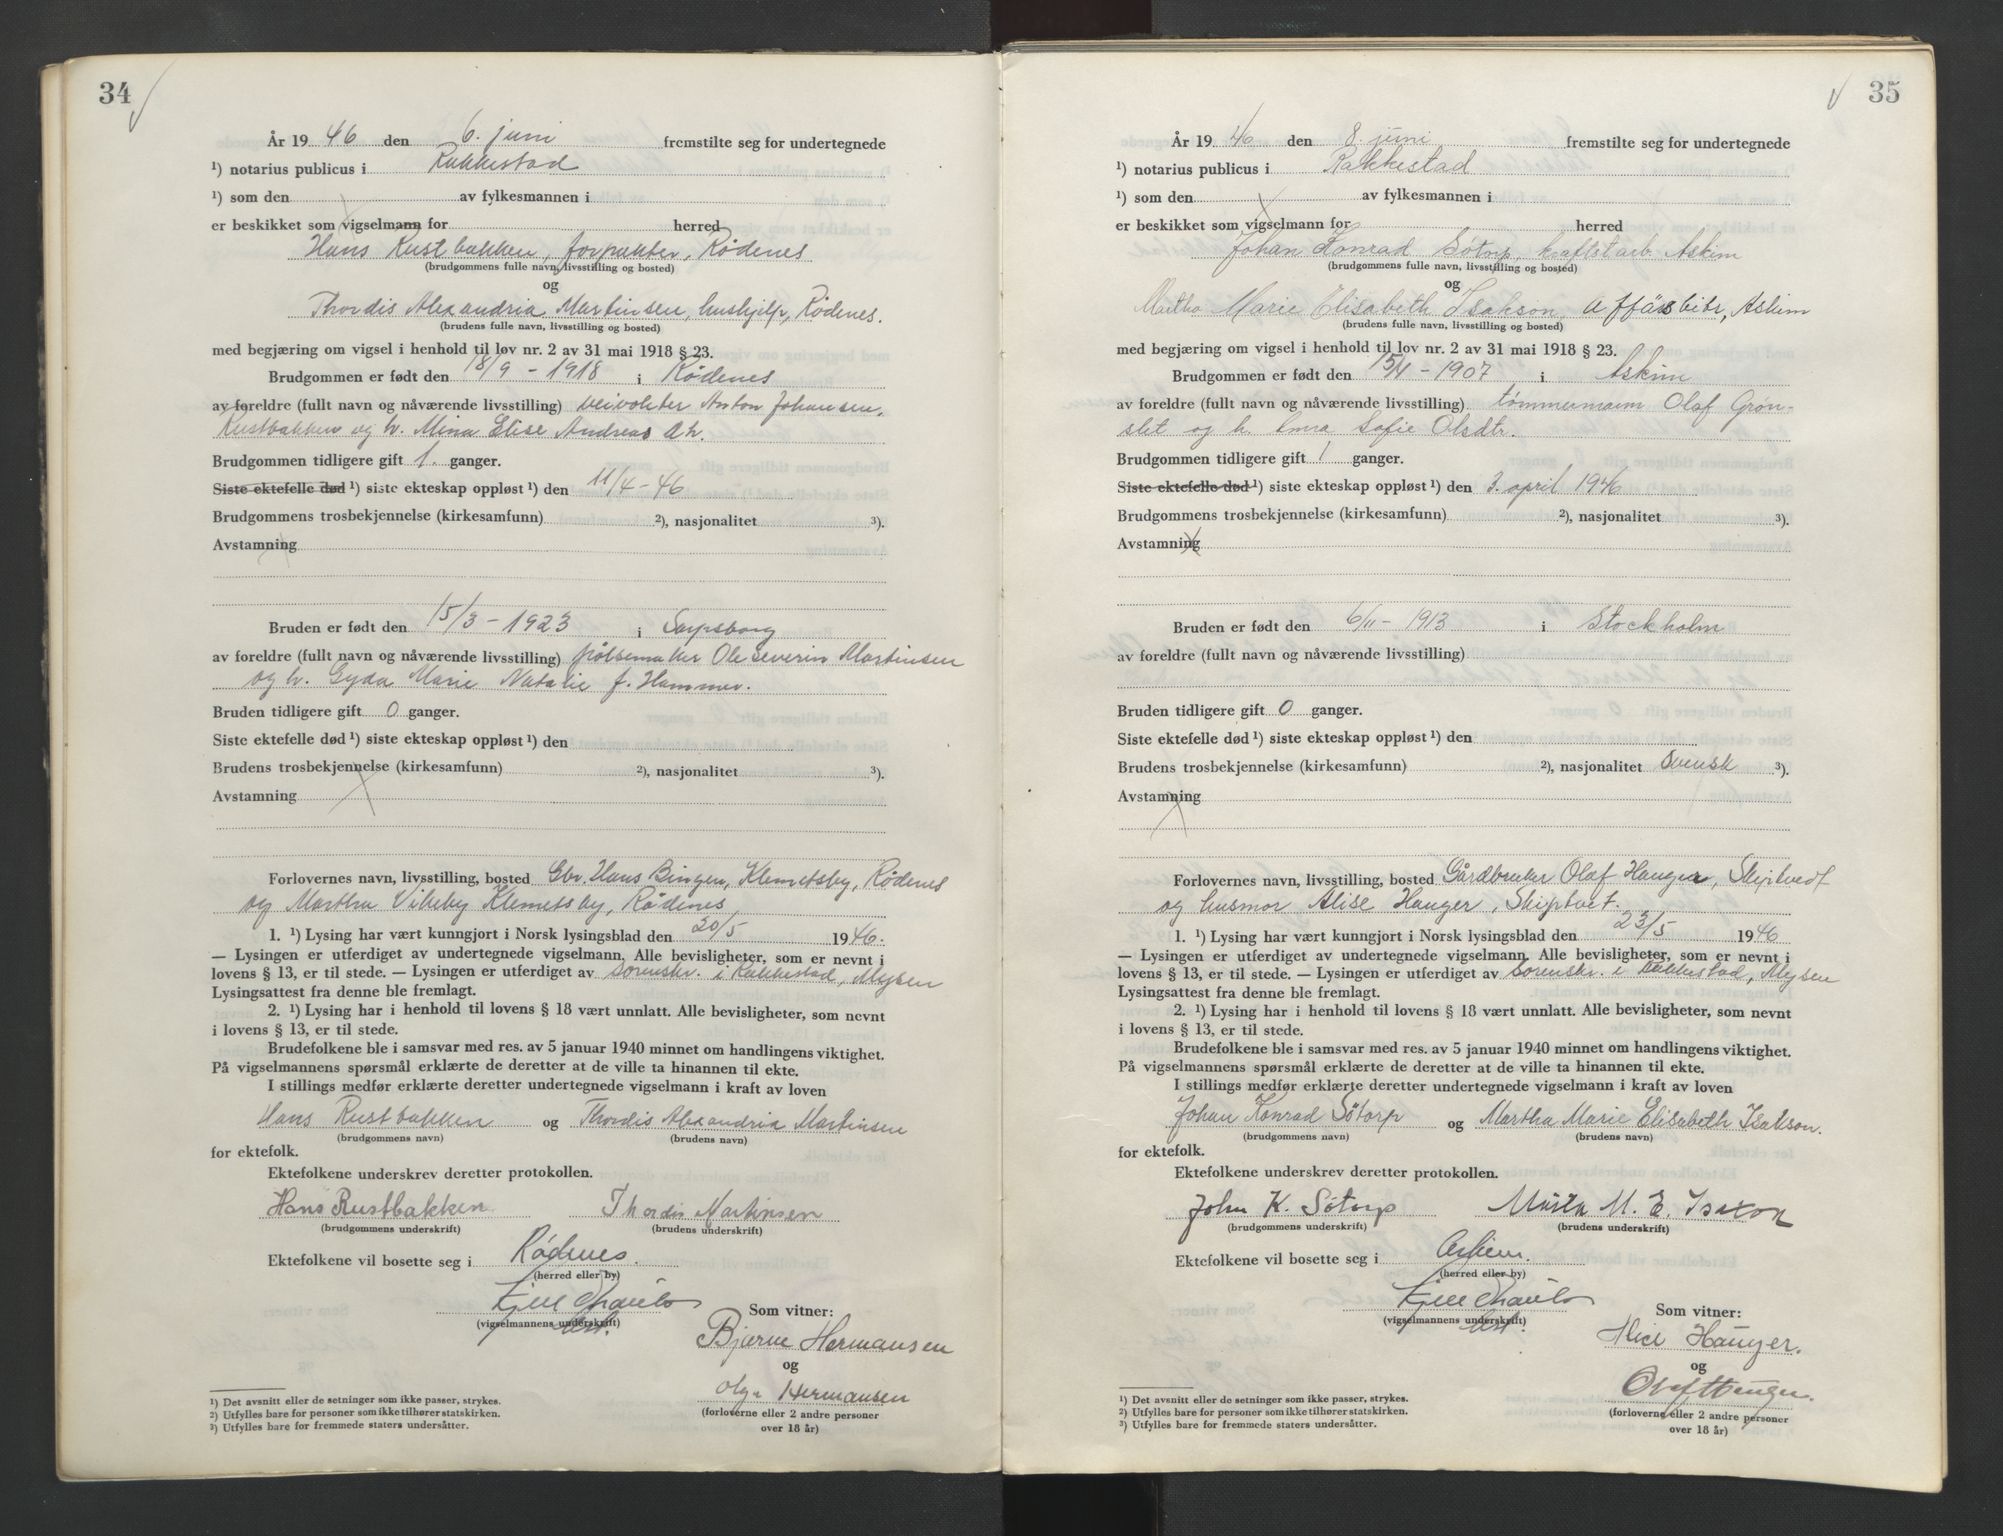 34
År 1946 den 6. juni fremstilte seg for undertegnede
¹) notarius publicus i Rakkestad
¹) som den av fylkesmannen i
er beskikket som vigselmann for herred
Hans Rustbakken, forpakter, Rødenes
(brudgommens fulle navn, livsstilling og bosted)
og
Thordis Alexandria Martinsen, hushjelp, Rødenes.
(brudens fulle navn, livsstilling og bosted)
med begjæring om vigsel i henhold til lov nr. 2 av 31 mai 1918 § 23.
Brudgommen er født den 18/9 - 1918 i Rødenes
av foreldre (fullt navn og nåværende livsstilling) veivokter Anton Johansen
Rustbakken og h. Mina Elise Andreas dtr.
Brudgommen tidligere gift 1. ganger.
Siste ektefelle død ¹) siste ekteskap oppløst ¹) den 11/4 - 46
Brudgommens trosbekjennelse (kirkesamfunn) ²), nasjonalitet ³).
Avstamning
Bruden er født den 15/3 - 1923 i Sarpsborg
av foreldre (fullt navn og nåværende livsstilling) pølsemaker Ole Severin Martinsen
og h. Gyda Marie Natalie f. Hammer.
Bruden tidligere gift 0 ganger.
Siste ektefelle død ¹) siste ekteskap oppløst ¹) den
Brudens trosbekjennelse (kirkesamfunn) ²), nasjonalitet ³).
Avstamning
Forlovernes navn, livsstilling, bosted Gbr. Hans Bingen, Klemetsby, Rødenes
og Martha Vikeby Klemetsby, Rødenes
1. ¹) Lysing har vært kunngjort i Norsk lysingsblad den 20/5 1946.
— Lysingen er utferdiget av undertegnede vigselmann. Alle bevisligheter, som er nevnt i
lovens § 13, er til stede. — Lysingen er utferdiget av sorenskr. i Rakkestad, Mysen
Lysingsattest fra denne ble fremlagt.
2. ¹) Lysing har i henhold til lovens § 18 vært unnlatt. Alle bevisligheter, som nevnt
i lovens § 13, er til stede.
Brudefolkene ble i samsvar med res. av 5 januar 1940 minnet om handlingens viktighet.
På vigselmannens spørsmål erklærte de deretter at de ville ta hinannen til ekte.
I stillings medfør erklærte deretter undertegnede vigselmann i kraft av loven
Hans Rustbakken og Thordis Alexandria Martinsen
(brudgommens navn) (brudens navn)
for ektefolk.
Ektefolkene underskrev deretter protokollen.
Hans Rustbakken Thordis Martinsen
(brudgommens underskrift) (brudens underskrift)
Ektefolkene vil bosette seg i Rødenes.
(herred eller by)
(vigselmannens underskrift)
Som vitner:
Bjarne Hermansen
og
Olga Hermansen
(forloverne eller 2 andre personer
over 18 år)
¹) Det avsnitt eller de setninger som ikke passer, strykes.
²) Utfylles bare for personer som ikke tilhører statskirken.
³) Utfylles bare for fremmede staters undersåtter.
35
År 1946 den 8. juni fremstilte seg for undertegnede
¹) notarius publicus i Rakkestad
¹) som den av fylkesmannen i
er beskikket som vigselmann for herred
Johan Konrad Søtorp, kraftst.arb. Askim
(brudgommens fulle navn, livsstilling og bosted)
og
Martha Marie Elisabeth Isakson, Askim
(brudens fulle navn, livsstilling og bosted)
med begjæring om vigsel i henhold til lov nr. 2 av 31 mai 1918 § 23.
Brudgommen er født den 1907 i Askim
av foreldre (fullt navn og nåværende livsstilling) tømmermann Olaf Grøn-
slet og h. Sofie Olsdtr.
Brudgommen tidligere gift 1 ganger.
Siste ektefelle død ¹) siste ekteskap oppløst ¹) den 3. april 1946
Brudgommens trosbekjennelse (kirkesamfunn) ²), nasjonalitet ³).
Avstamning
Bruden er født den 6/11 - 1913 i Stockholm
av foreldre (fullt navn og nåværende livsstilling)
Bruden tidligere gift 0 ganger.
Siste ektefelle død ¹) siste ekteskap oppløst ¹) den
Brudens trosbekjennelse (kirkesamfunn) ²), nasjonalitet svensk ³).
Avstamning
Forlovernes navn, livsstilling, bosted Gårdbruker Olaf Hauger, Skiptvedt
og husmor Alise Hauger, Skiptvet.
1. ¹) Lysing har vært kunngjort i Norsk lysingsblad den 23/5 1946
— Lysingen er utferdiget av undertegnede vigselmann. Alle bevisligheter, som er nevnt i
lovens § 13, er til stede. — Lysingen er utferdiget av Sorenskr. i Rakkestad, Mysen
Lysingsattest fra denne ble fremlagt.
2. ¹) Lysing har i henhold til lovens § 18 vært unnlatt. Alle bevisligheter, som nevnt
i lovens § 13, er til stede.
Brudefolkene ble i samsvar med res. av 5 januar 1940 minnet om handlingens viktighet.
På vigselmannens spørsmål erklærte de deretter at de ville ta hinannen til ekte.
I stillings medfør erklærte deretter undertegnede vigselmann i kraft av loven
Johan Konrad Søtorp og Martha Marie Elisabeth Isakson.
(brudgommens navn) (brudens navn)
for ektefolk.
Ektefolkene underskrev deretter protokollen.
John K. Søtorp Märta M. E. Isaxon
(brudgommens underskrift) (brudens underskrift)
Ektefolkene vil bosette seg i Askim.
(herred eller by)
(vigselmannens underskrift)
Som vitner:
Alice Hauger.
og
Olaf Hauger.
(forloverne eller 2 andre personer
over 18 år)
¹) Det avsnitt eller de setninger som ikke passer, strykes.
²) Utfylles bare for personer som ikke tilhører statskirken.
³) Utfylles bare for fremmede staters undersåtter.